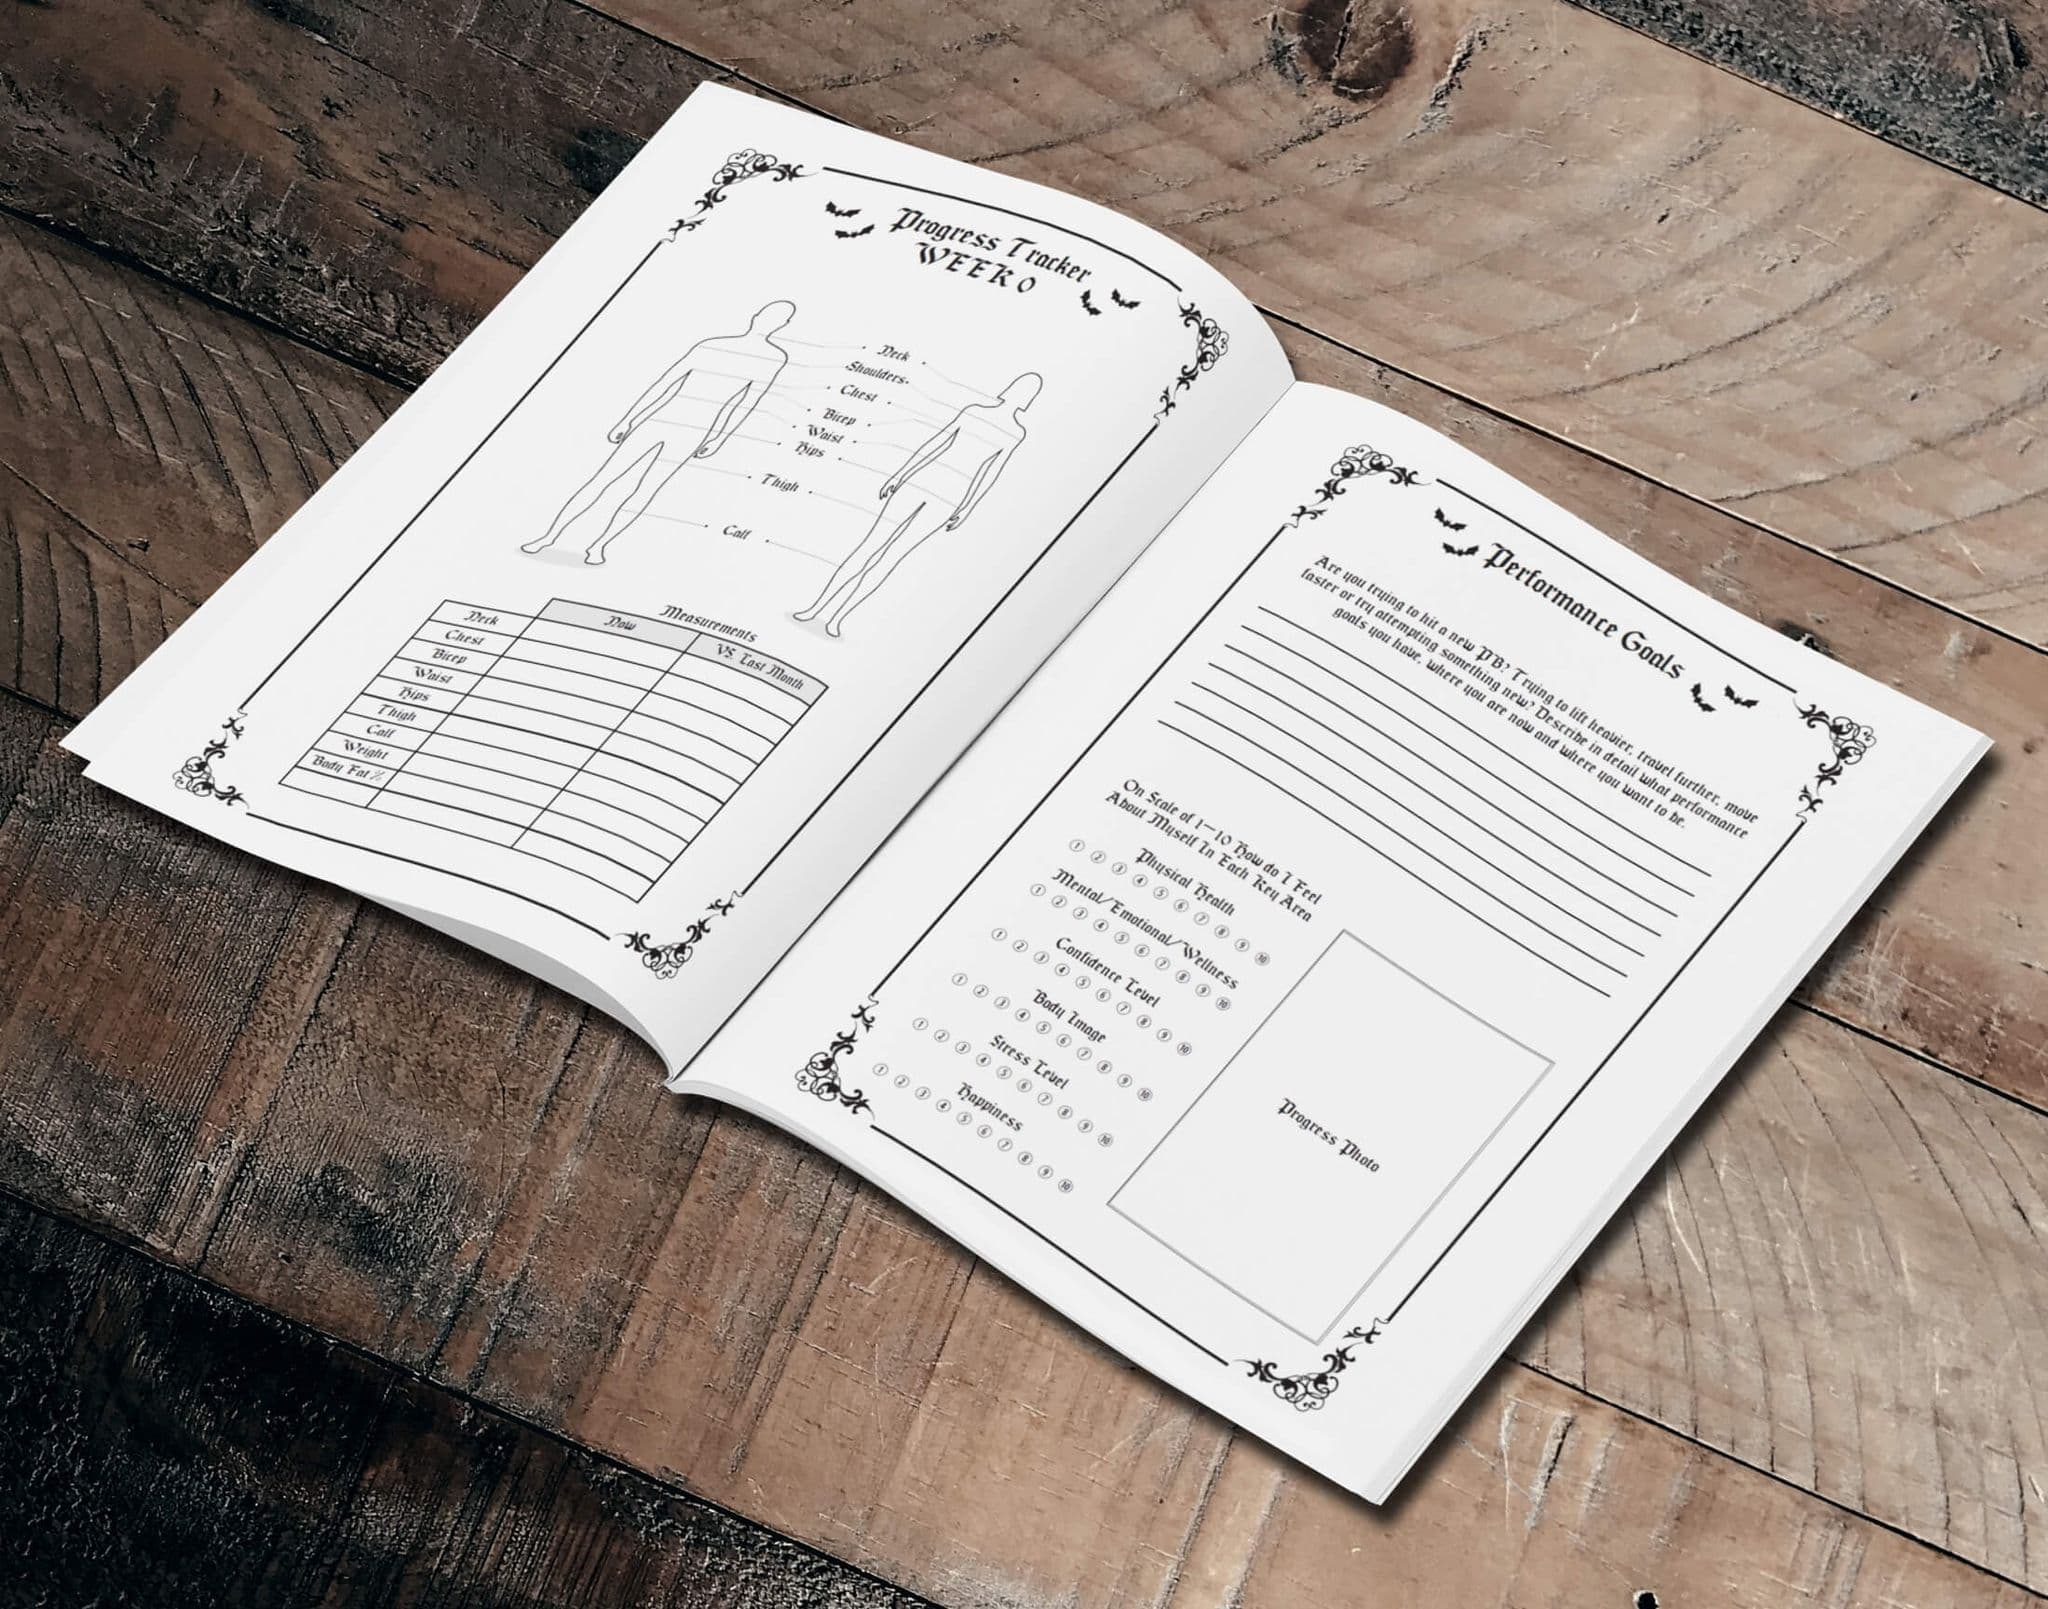 Progress Tracker
WEEK 0
Neck
Shoulders
Chest
Bicep
Waist
Hips
Thigh
Calf
Measurements
Now
VS. Last Month
Neck
Chest
Bicep
Waist
Hips
Thigh
Calf
Weight
Body Fat %
Performance Goals
Are you trying to hit a new PB? Trying to lift heavier, travel further, move
faster or try attempting something new? Describe in detail what performance
goals you have, where you are now and where you want to be.
On Scale of 1-10 How do I Feel
About Myself In Each Key Area
Physical Health
1 2 3 4 5 6 7 8 9 10
Mental/Emotional/Wellness
1 2 3 4 5 6 7 8 9 10
Confidence Level
1 2 3 4 5 6 7 8 9 10
Body Image
1 2 3 4 5 6 7 8 9 10
Stress Level
1 2 3 4 5 6 7 8 9 10
Happiness
1 2 3 4 5 6 7 8 9 10
Progress Photo